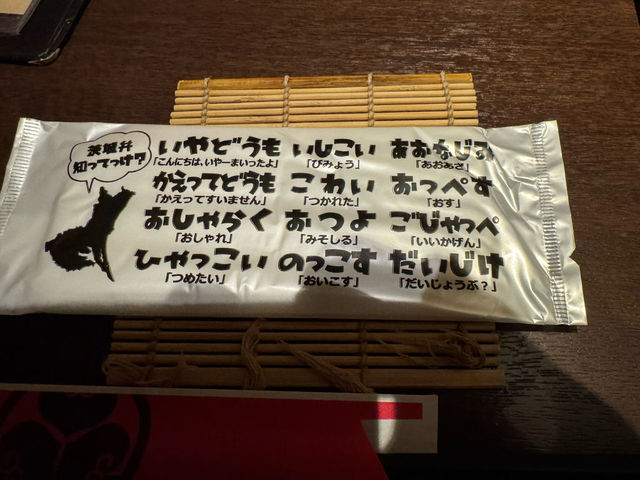 茨城弁
知ってっけ?
いやどうも いしこい あおなじみ
「こんにちは、いやーまいったよ」 「びみょう」 「あおあざ」
かえってどうも こわい おっぺす
「かえってすいません」 「つかれた」 「おす」
おしゃらく おつよ ごじゃっぺ
「おしゃれ」 「みそしる」 「いいかげん」
ひゃっこい のっこす だいじけ
「つめたい」 「おいこす」 「だいじょうぶ?」